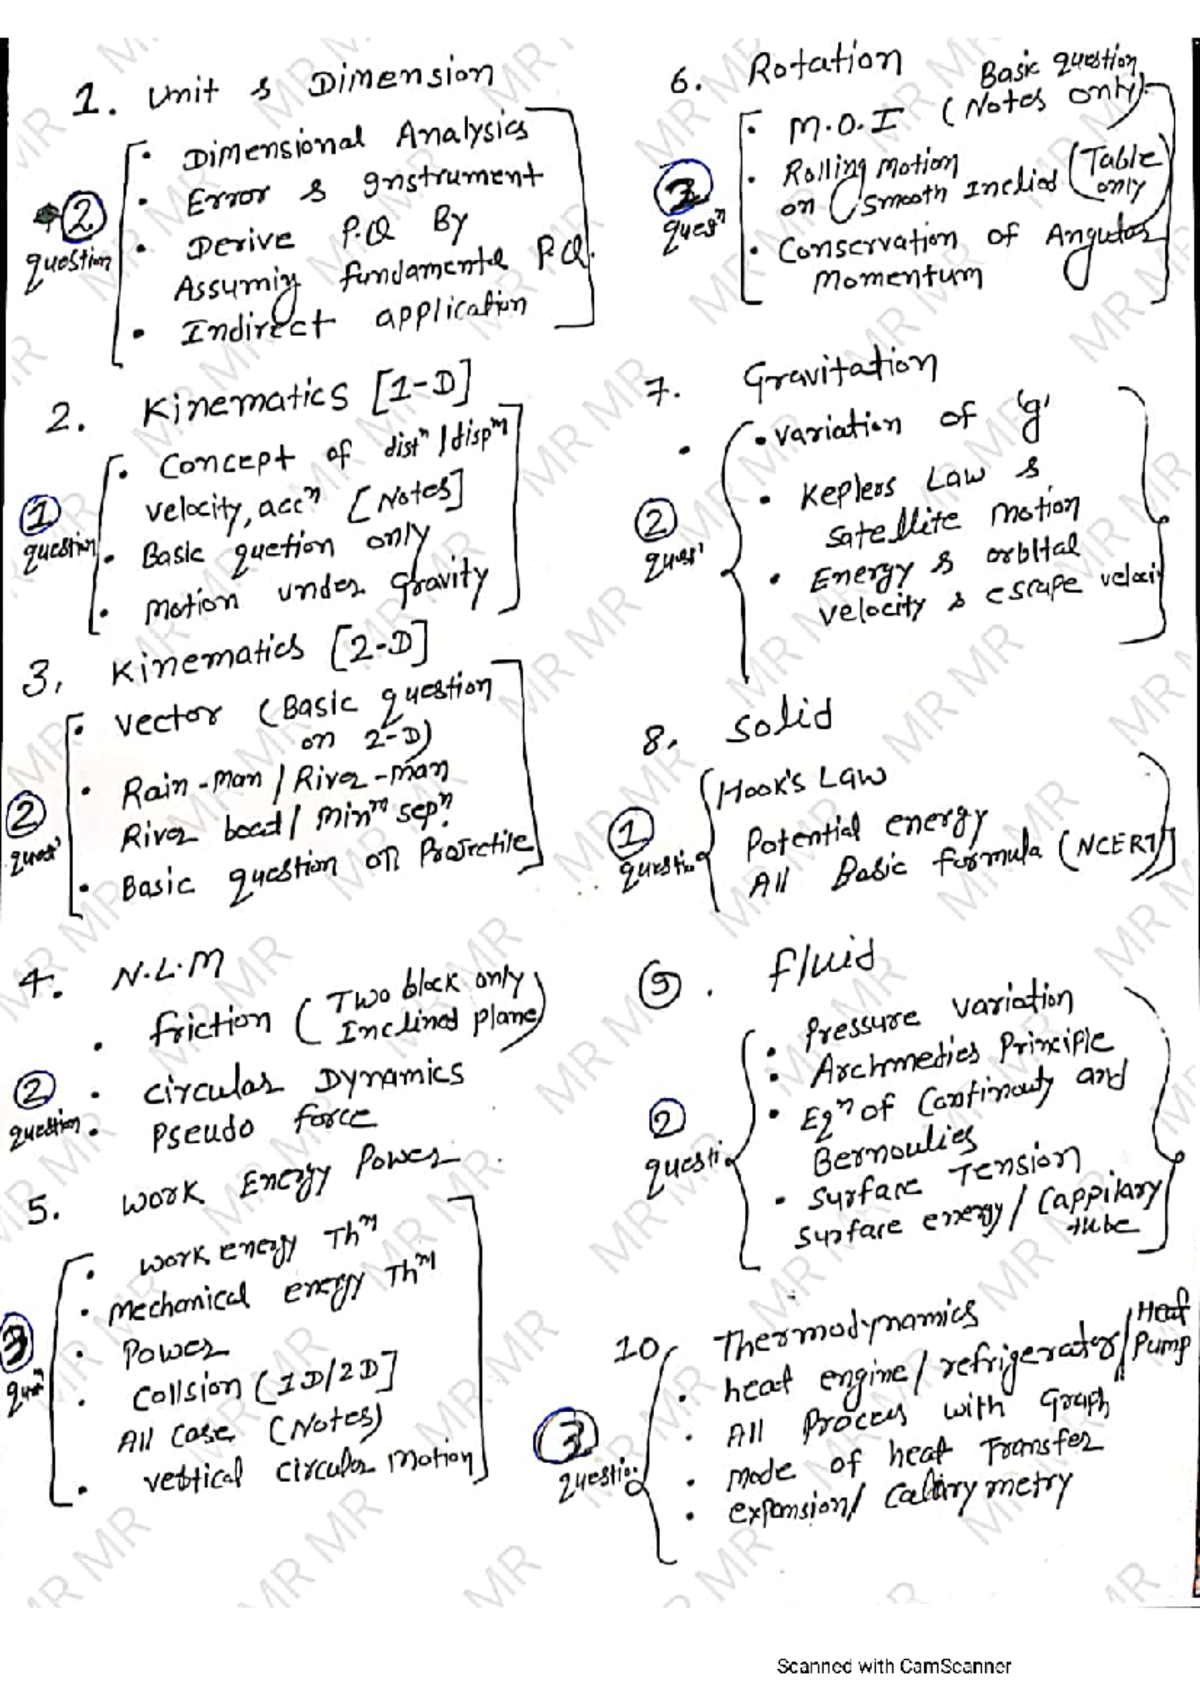 1. Unit & Dimension
• Dimensional Analysics
• Error & Instrument
• Derive P.Q By
Assuming fundamental P.Q.
• Indirect application
2
question
2. Kinematics [1-D]
• Concept of distⁿ/dispᵐ
velocity, accⁿ [Notes]
• Basic quetion only
• Motion under Gravity
1
question
3. Kinematics [2-D]
• Vector (Basic question
on 2-D)
• Rain-Man / River-man
River boat / Minᵐ sepⁿ.
• Basic question on Projectile
2
ques'
4. N.L.M
• friction (Two block only
Inclined plane)
• Circular Dynamics
• Pseudo force
2
question
5. Work Energy Power
• Work energy Thᵐ
• Mechanical energy Thᵐ
• Power
• Collsion (1D/2D]
All Case (Notes)
• vertical circular Motion
3
quesⁿ
6. Rotation
Basic question
• M.O.I (Notes only)
• Rolling Motion
on Smooth Inclied (Table
only)
• Conservation of Angular
Momentum
3
quesⁿ
7. Gravitation
• Variation of 'g'
• Keplers Law &
satellite Motion
• Energy & orbital
velocity & escape velocity
2
ques'
8. Solid
Hook's Law
Potential energy
All Basic formula (NCERT)
1
questio
9. Fluid
• Pressure Variation
• Archmedies Principle
• Eqⁿ of Continouty and
Bernoulies
• Surface Tension
Surface energy / Cappilary
tube
2
questi
10. Thermodynamics
• heat engine / refrigerator / Heat
Pump
• All Process with Graph
• Mode of heat Transfer
• expansion / Calary metry
3
question
MR MR MR MR
Scanned with CamScanner